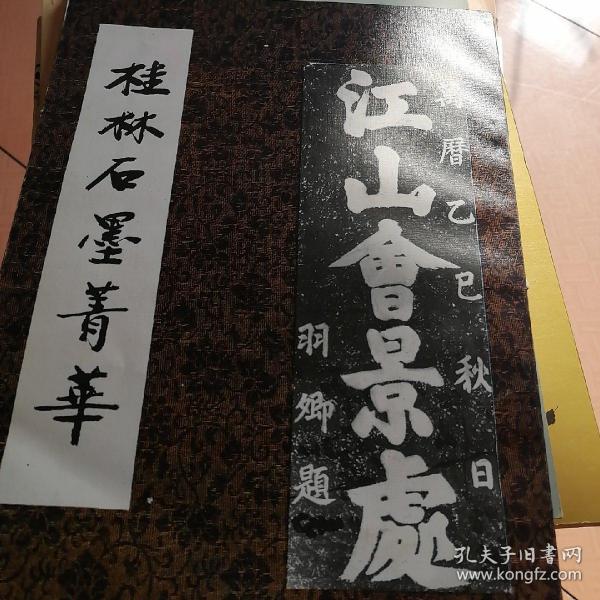 桂林石墨菁華
萬曆乙巳秋日
江山會景處
羽卿題
孔夫子旧書网
www.kongfz.com